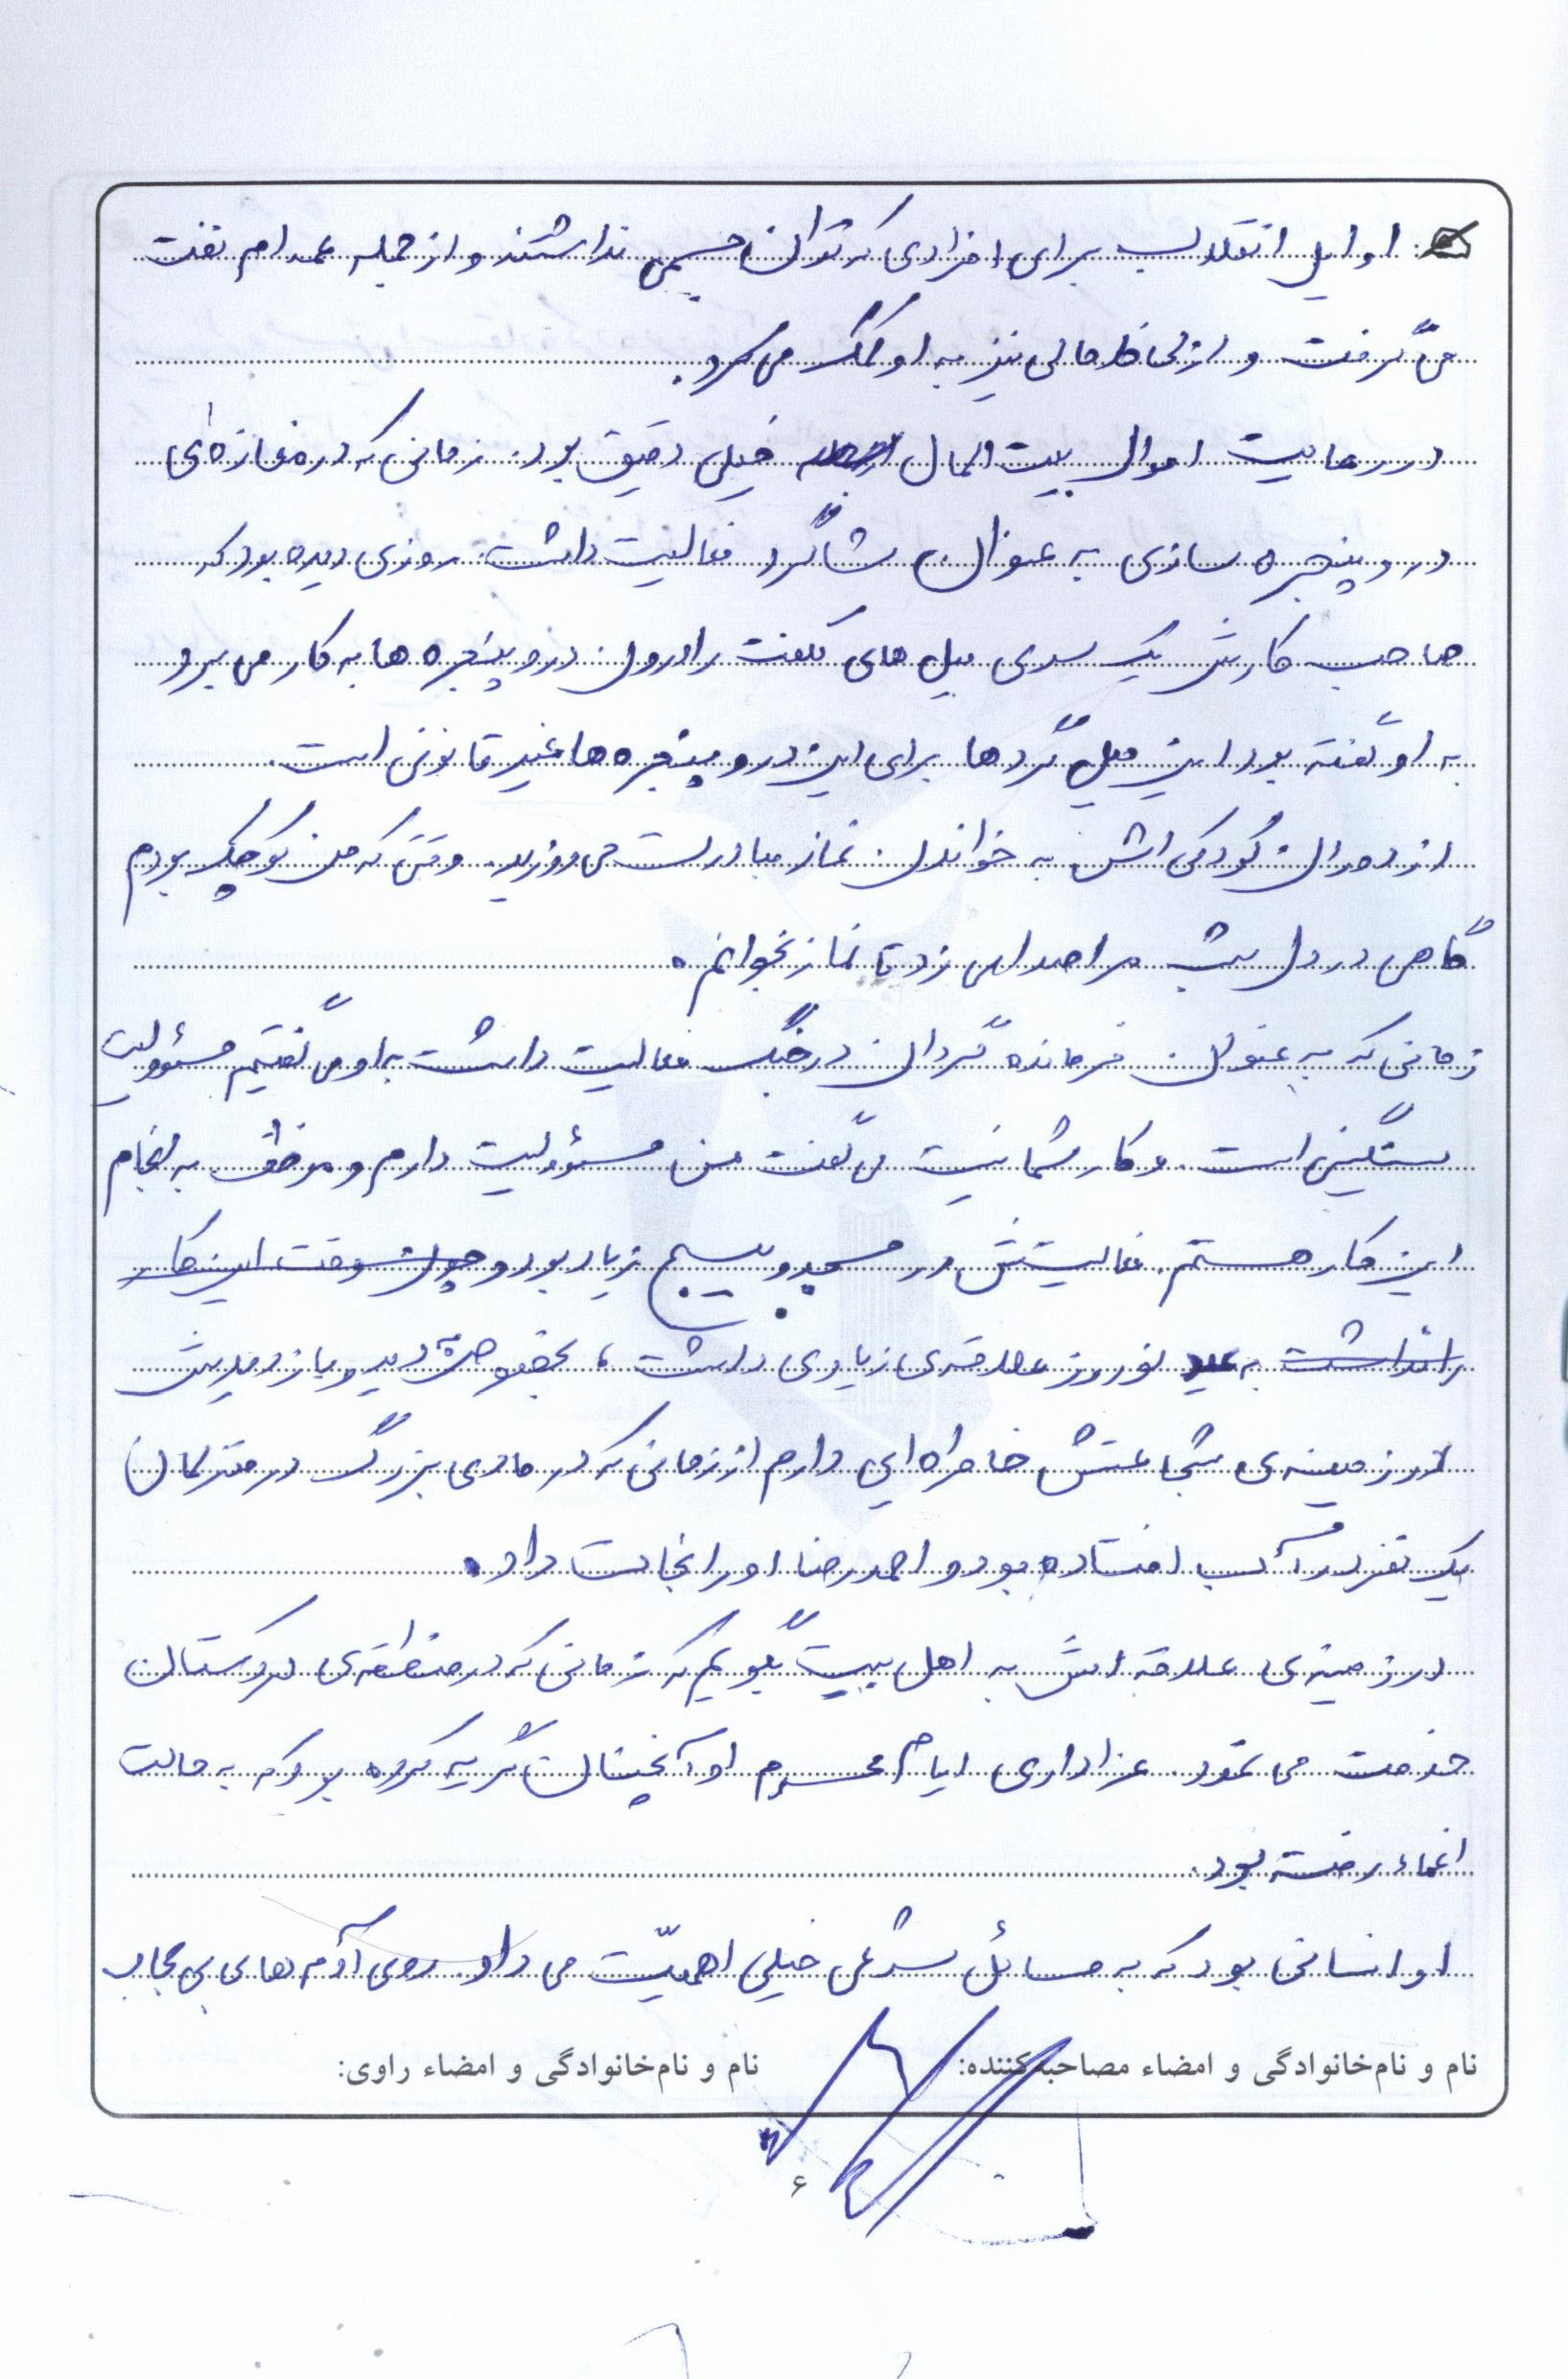 اوایل انقلاب برای افرادی که توان جسمی نداشتند و از جمله عمه ام نفت
می گرفت و از لحاظ مالی نیز به او کمک می کرد.
در رعایت اموال بیت المال خیلی دقیق بود. زمانی که در مغازه ای
در و پنجره سازی به عنوان شاگرد فعالیت داشت. روزی دیده بود که
صاحب کارش یک سری میل های کلفت را درون در و پنجره ها به کار می برد
به او گفته بود این میل گردها برای این در و پنجره ها غیر قانونی است.
از دوران کودکی اش به خواندن نماز مبادرت می ورزید. وقتی که من کوچک بودم
گاهی در دل شب مرا صدا می زد تا نماز بخوانم.
زمانی که به عنوان فرمانده گردان در جنگ فعالیت داشت به او می گفتیم مسؤولیت
سنگینی است. و کار شما نیست می گفت من مسؤولیت دارم و موظف به انجام
این کار هستم. فعالیتش در مسجد و بسیج زیاد بود و چون وقت این کار
را نداشت به عید نوروز علاقه ی زیادی داشت، بخصوص دید و بازدیدش
در زمینه ی شجاعتش خاطره ای دارم از زمانی که در مادی بزرگ در منزلمان
یک نفر در آب افتاده بود و احمدرضا او را نجات داد.
در زمینه ی علاقه اش به اهل بیت بگویم که زمانی که در منطقه ی کردستان
خدمت می نمود. عزاداری ایام محرم او آنچنان گریه کرده بود که به حالت
اغماء رفته بود.
او انسانی بود که به مسائل شرعی خیلی اهمیّت می داد. روی آدم های بی حجاب
نام و نام‌خانوادگی و امضاء مصاحبه‌کننده: نام و نام‌خانوادگی و امضاء راوی:
۶